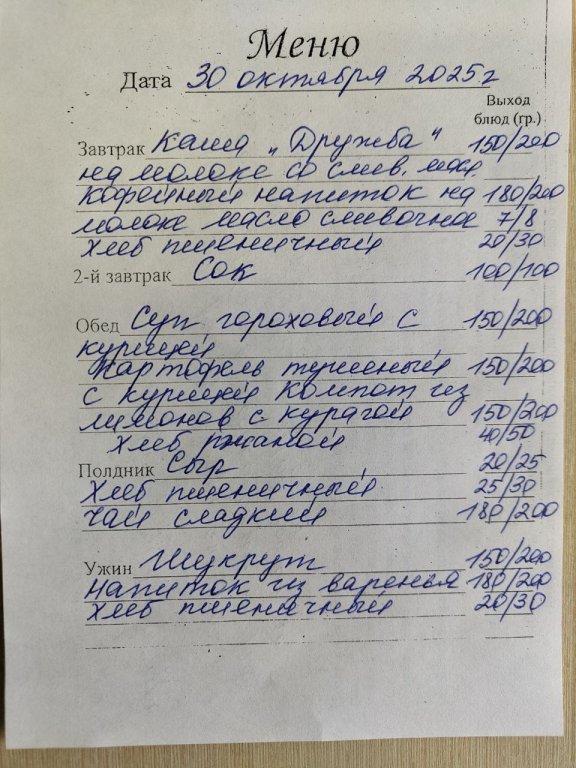 Меню
Дата 30 октября 2025г
Выход
блюд (гр.)
Завтрак Каша „Дружба" 150/200
на молоке со слив. мас
Кофейный напиток на 180/200
молоке масло сливочное 7/8
Хлеб пшеничный 20/30
2-й завтрак Сок 100/100
Обед Суп гороховый с 150/200
курицей
Картофель тушеный 150/200
с курицей Компот из
лимонов с курагой 150/200
Хлеб ржаной 40/50
Полдник Сыр 20/25
Хлеб пшеничный 25/30
Чай сладкий 180/200
Ужин Шукрут 150/200
Напиток из варенья 180/200
Хлеб пшеничный 20/30